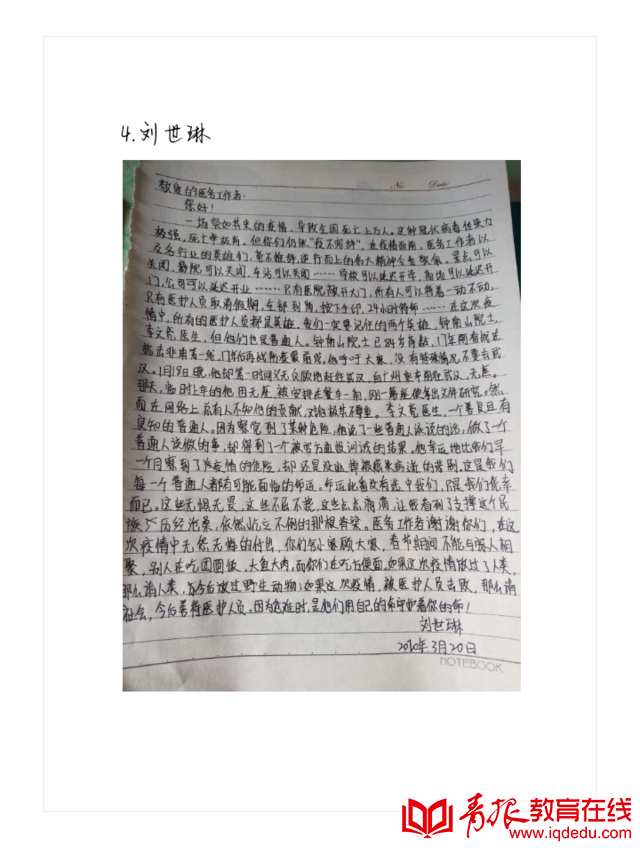 4.刘世琳
No.    Date
敬爱的医务工作者:
您好!
一场突如其来的疫情,导致全国死亡上万人。这种冠状病毒传染力
极强,死亡率极高。但你们仍然"义不容辞",在疫情面前,医务工作者以
及各行业的英雄们,义不容辞,逆行而上的伟大精神令我敬佩。景点可以
关闭,影院可以关闭,车站可以关闭……学校可以延迟开学,商场可以延迟开
门,公司可以延迟开业……只有医院敞开大门,所有人可以待着一动不动,
只有医护人员取消假期,全部到岗,按下手印,24小时待命……在这次疫
情中,所有的医护人员都是英雄。我们一定要记住的两个英雄,钟南山院士,
李文亮医生,但他们也是普通人。钟南山院士已84岁高龄,17年前有战过
非典第一线,17年后再战
汉。1月18日晚,他却第一时间义无反顾地赶往武汉,自广州乘车南往武汉,无座。
那天,临时上车的他因无座,被安排在餐车一角,刚一落座便拿出文件研究。然
而在网络上总有人不知他的贡献,对他极其不尊重。李文亮医生,一个善良且有
良知的普通人。因为察觉到了某种危险,他说了一些普通人该说的话,做了一个
普通人该做的事,却得到了一个被官方直报训诫的结果。他幸运地比我们早
一个月察到了次疫情的危险,却还是没逃掉被感染病逝的悲剧。这是我们
每一个普通人都有可能面临的命运。命运此番没有选中我们,只是我们侥幸
而已。这些无惧无畏,这些不屈不挠,这些点点滴滴,让我看到了支撑这个民
族历经沧桑,依然屹立不倒的那根脊梁。医务工作者谢谢你们,在这
次疫情中无怨无悔的付出,你们舍小家顾大家,春节期间不能与家人相
聚,别人在吃团圆饭,大鱼大肉,而你们在吃方便面。如果这次疫情放过了人类,
那么请人类,今后放过野生动物;如果这次疫情,被医护人员击败,那么请
社会,今后善待医护人员。因为危难时,是他们用自己的命守护着你的命!
刘世琳
2020年3月20日
NOTEBOOK
青报教育在线
www.iqdedu.com